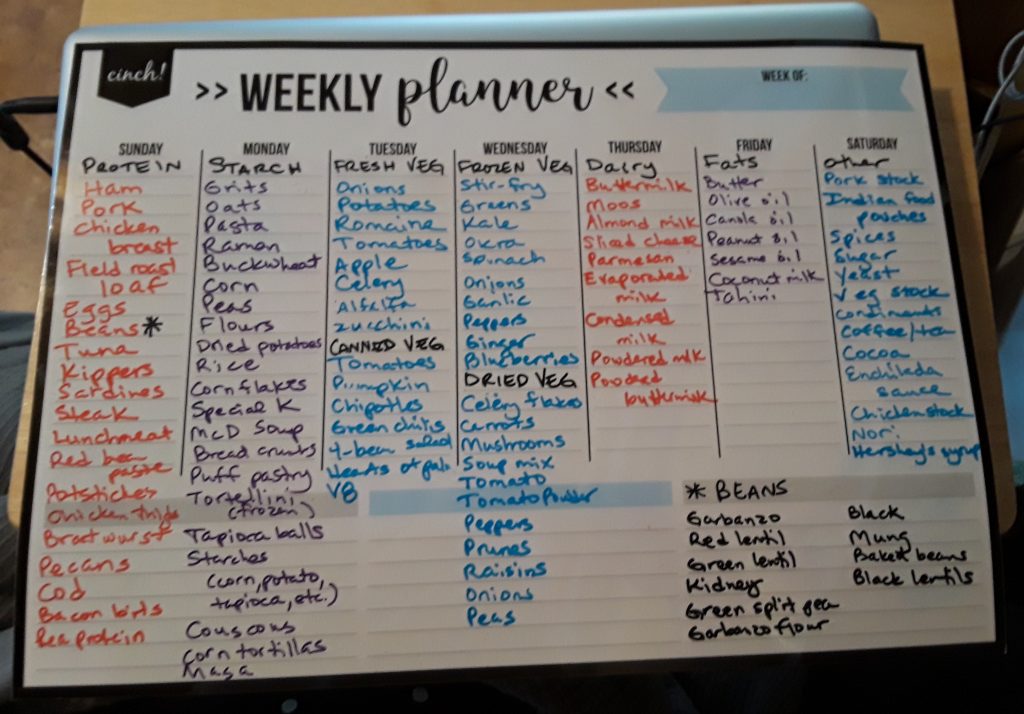 cinch!
>> WEEKLY planner <<
WEEK OF:
SUNDAY
PROTEIN
Ham
Pork
Chicken
breast
Field roast
loaf
Eggs
Beans*
Tuna
Kippers
Sardines
Steak
Lunchmeat
Red bean
paste
Potsticker
Chicken
Bratwurst
Pecans
Cod
Bacon bits
Pea protein
MONDAY
STARCH
Grits
Oats
Pasta
Ramen
Buckwheat
Corn
Peas
Flours
Dried potatoes
Rice
Cornflakes
Special K
McD Soup
Bread crumbs
Puff pastry
Tortellini
(frozen)
Tapioca balls
Starches
(corn, potato,
tapioca, etc.)
Couscous
Corn tortillas
Masa
TUESDAY
FRESH VEG
Onions
Potatoes
Romaine
Tomatoes
Apple
Celery
Alfalfa
Zucchini
CANNED VEG
Tomatoes
Pumpkin
Chipotles
Green chilis
4-bean salad
Hearts of palm
V8
WEDNESDAY
FROZEN VEG
Stir-fry
Greens
Kale
Okra
Spinach
Onions
Garlic
Peppers
Ginger
Blueberries
DRIED VEG
Celery flakes
Carrots
Mushrooms
Soup mix
Tomato
Tomato Powder
Peppers
Prunes
Raisins
Onions
Peas
THURSDAY
Dairy
Buttermilk
Moos
Almond milk
Sliced cheese
Parmesan
Evaporated
milk
Condensed
milk
Powdered milk
Powdered
buttermilk
FRIDAY
Fats
Butter
Olive oil
Canola oil
Peanut oil
Sesame oil
Coconut milk
Tahini
SATURDAY
Other
Pork stock
Indian food
pouches
Spices
Sugar
Yeast
Veg stock
Condiments
Coffee/tea
Cocoa
Enchilada
sauce
Chicken stock
Nori
Hershey's syrup
* BEANS
Garbanzo
Red lentil
Green lentil
Kidney
Green split pea
Garbanzo flour
Black
Mung
Baked beans
Black lentils